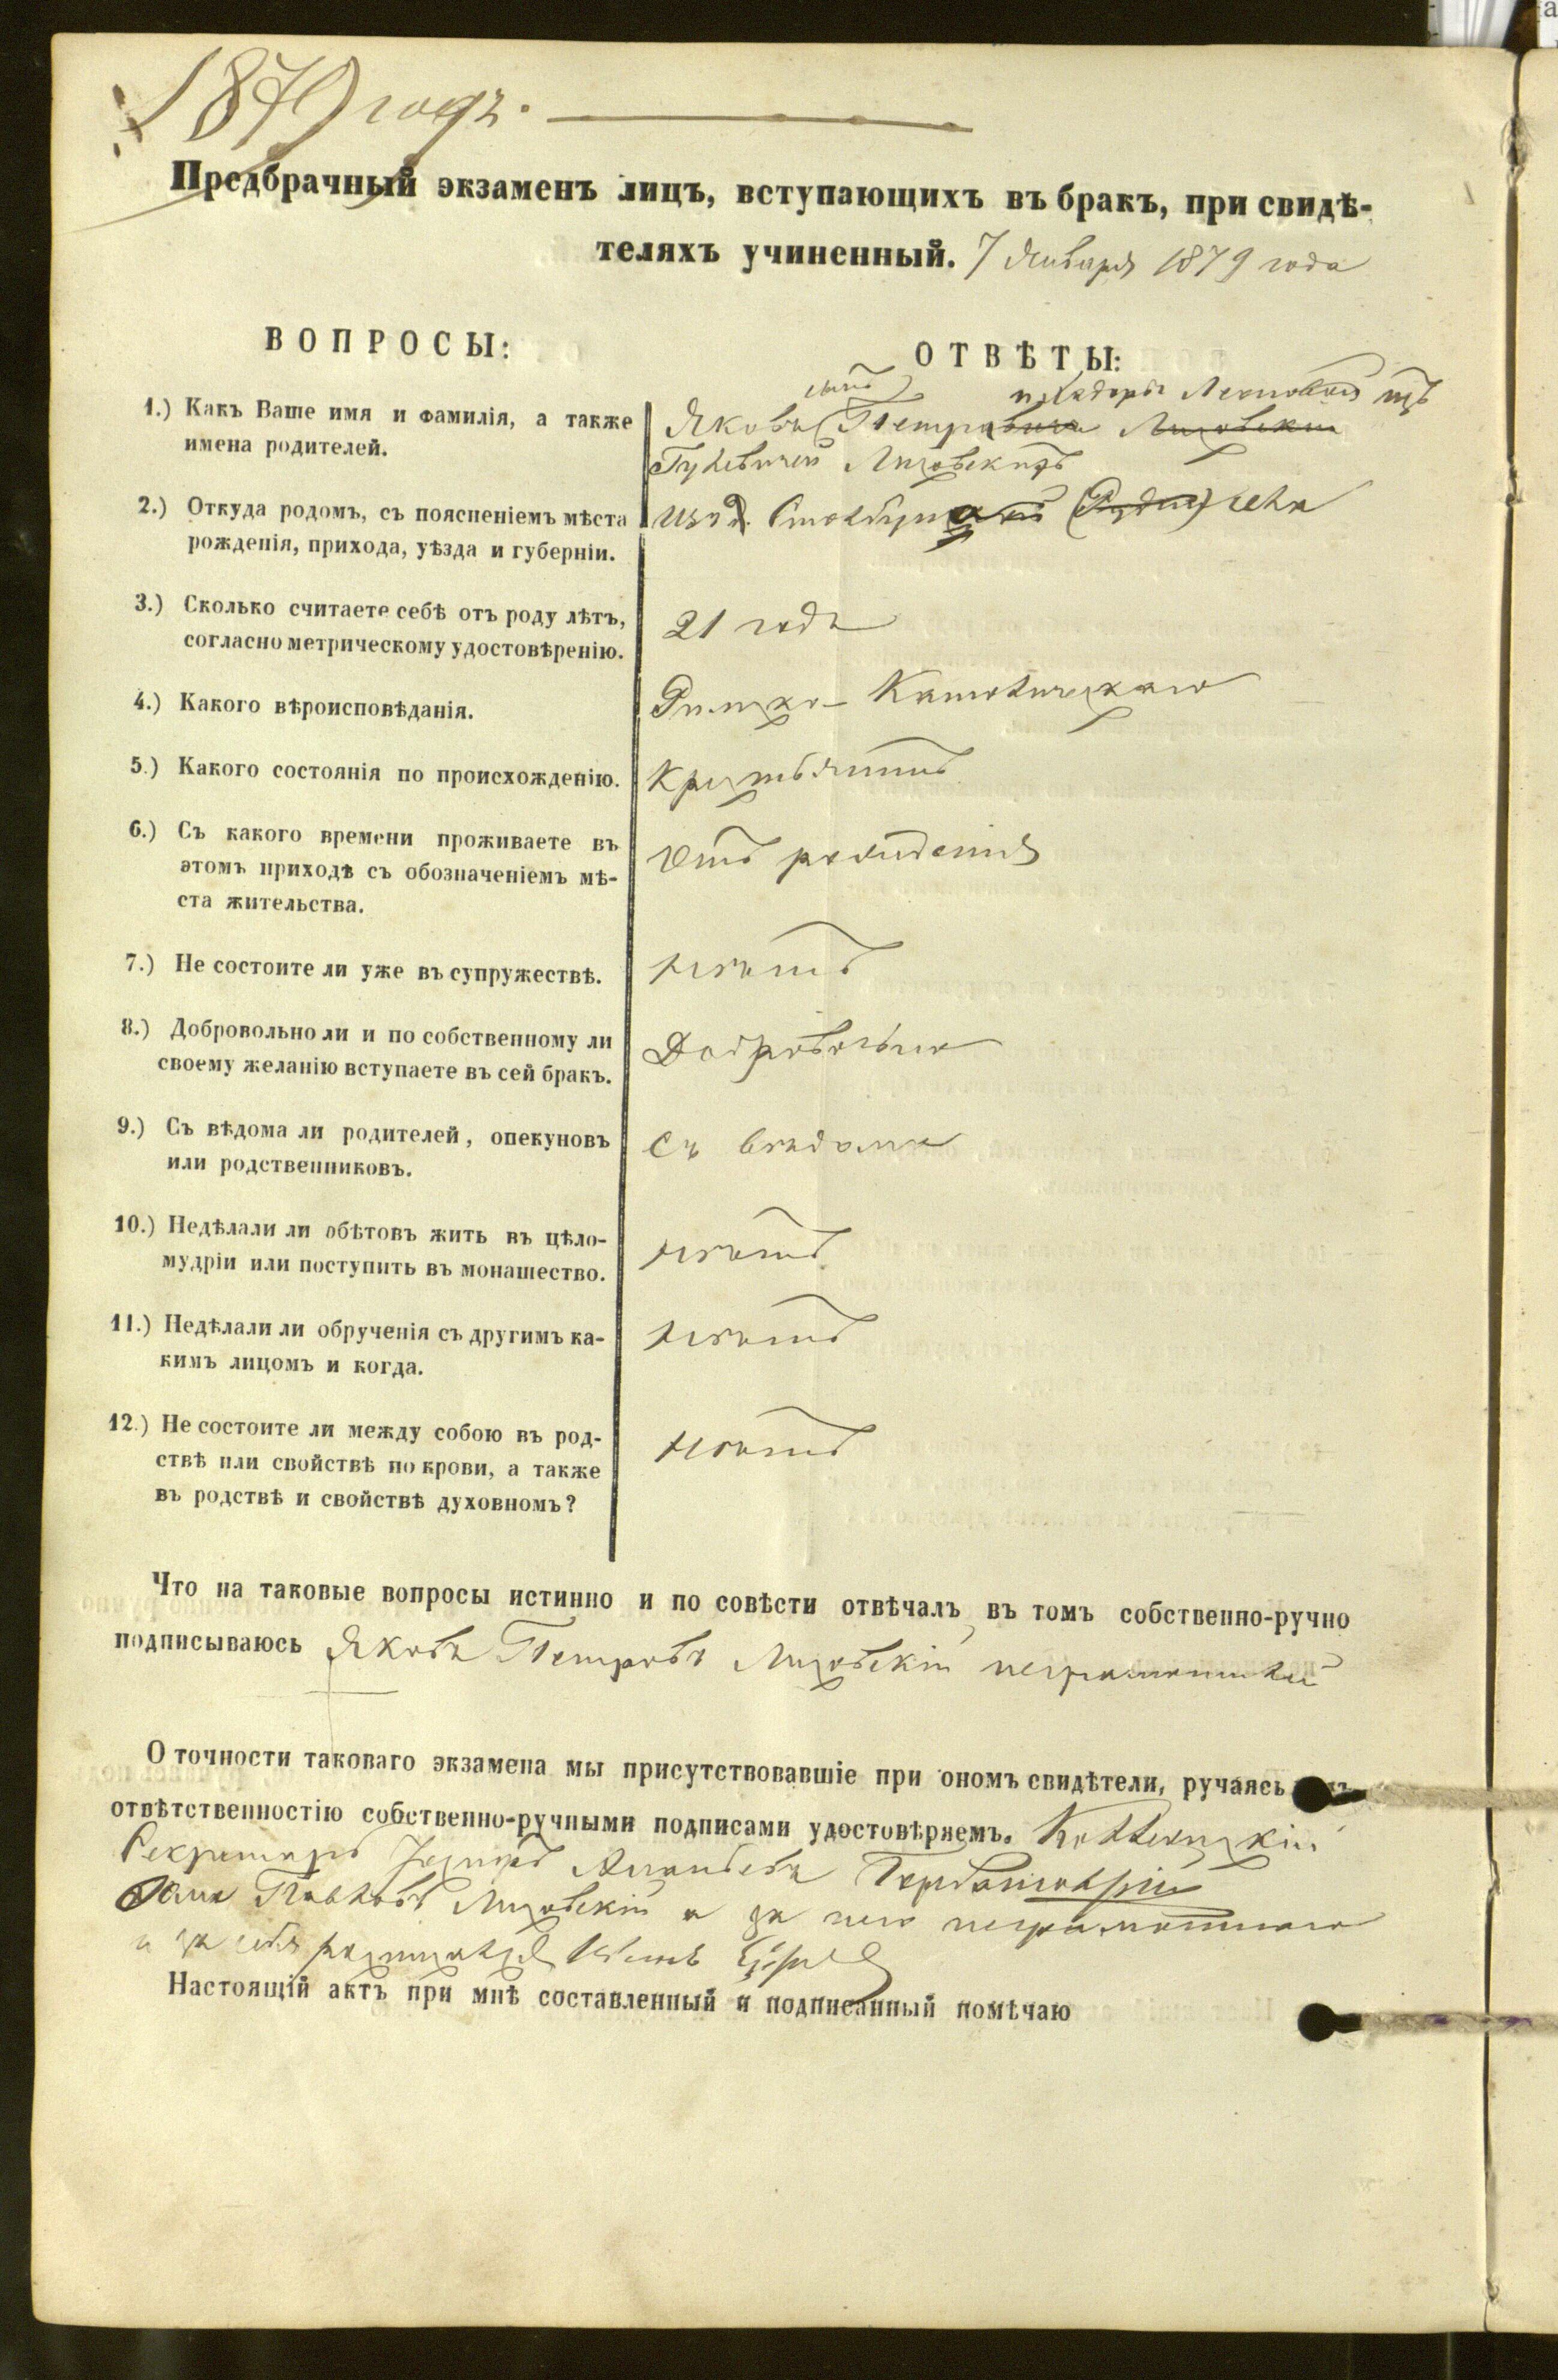 1879 годъ.
Предбрачный экзаменъ лицъ, вступающихъ въ бракъ, при свидѣ-
теляхъ учиненный. 7 Января 1879 года
ВОПРОСЫ:
ОТВѢТЫ:
1.) Какъ Ваше имя и фамилія, а также
имена родителей.
сынъ
Яковъ Петра
Лисовскихъ
2.) Откуда родомъ, съ поясненіемъ мѣста
рожденія, прихода, уѣзда и губерніи.
3.) Сколько считаете себѣ отъ роду лѣтъ,
согласно метрическому удостовѣренію.
21 годъ
4.) Какого вѣроисповѣданія.
Римско-Католическаго
5.) Какого состоянія по происхожденію.
Крестьянинъ
6.) Съ какого времени проживаете въ
этомъ приходѣ съ обозначеніемъ мѣ-
ста жительства.
Отъ рожденія
7.) Не состоите ли уже въ супружествѣ.
Нѣтъ
8.) Добровольно ли и по собственному ли
своему желанію вступаете въ сей бракъ.
Добровольно
9.) Съ вѣдома ли родителей, опекуновъ
или родственниковъ.
Съ вѣдома
10.) Недѣлали ли обѣтовъ жить въ цѣло-
мудріи или поступить въ монашество.
Нѣтъ
11.) Недѣлали ли обрученія съ другимъ ка-
кимъ лицомъ и когда.
Нѣтъ
12.) Не состоите ли между собою въ род-
ствѣ или свойствѣ по крови, а также
въ родствѣ и свойствѣ духовномъ?
Нѣтъ
Что на таковые вопросы истинно и по совѣсти отвѣчалъ, въ томъ собственно-ручно
подписываюсь Яковъ Петровъ Лисовскій неграмотный
О точности таковаго экзамена мы присутствовавшіе при ономъ свидѣтели, ручаясь
отвѣтственностію собственно-ручными подписами удостовѣряемъ.
Павловъ Лисовскій а за него неграмотнаго
и за себя росписался
Настоящій актъ при мнѣ составленный и подписанный помѣчаю